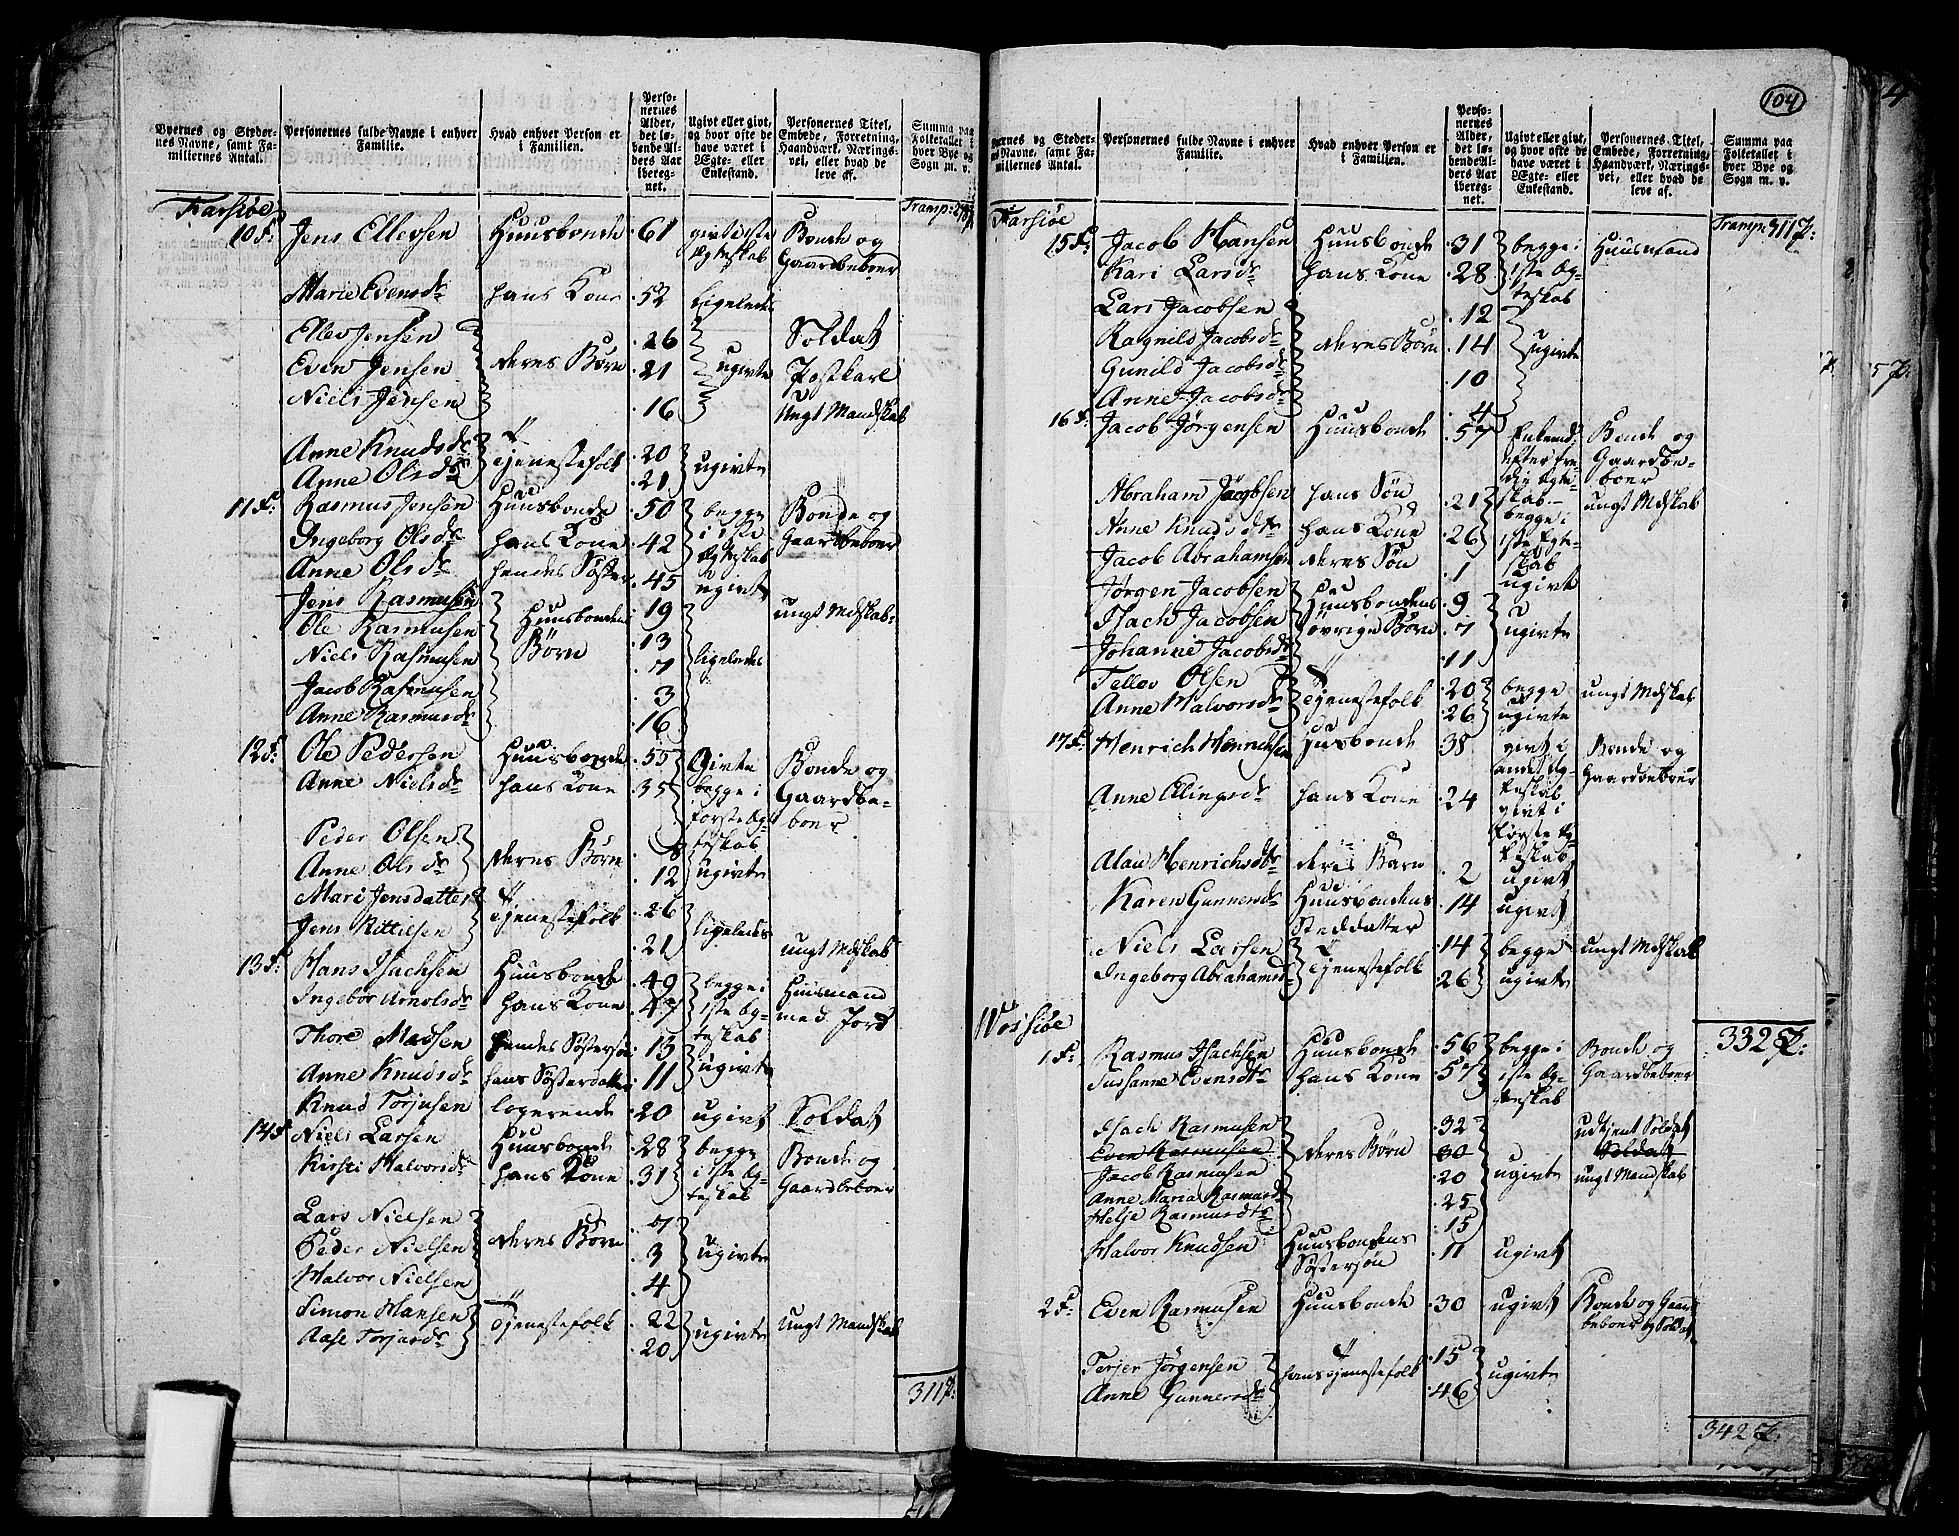 104
Byernes og Stedernes Navne, samt Familiernes Antal.
Personernes fulde Navne i enhver Familie.
Hvad enhver Person er i Familien.
Personernes Alder, det løbende Alders Aar iberegnet.
Ugivt eller givt, og hvor ofte de have været i Ægte- eller Enkestand.
Personernes Titel, Embede, Forretning, Haandværk, Næringsvei, eller hvad de leve af.
Summa paa Folketallet i hver Bye og Sogn m. v.
Farsiøe
10 F. Jens Ellevsen Huusbonde 61 givt 1ste Ægteskab Bonde og Gaardbeboer
Marie Evensdr hans Kone 52 ligeledes
Ellev Jensen 26 Soldat
Even Jensen deres Børn 21 ugivte Postkarl
Niels Jensen 16 Ungt Mandskab
Anne Knudsdr 20
Anne Olsdr Tjenestefolk 21 ugivte
11 F. Rasmus Jensen Huusbonde 50 begge Bonde og
Ingeborg Olsdr hans Kone 42 i 1ste Ægteskab Gaardbeboer
Anne Olsdr hendes Søster 45 ugivt
Jens Rasmusen Huusbondens 19 ungt Mdskab
Ole Rasmusen Børn 13
Niels Rasmusen 7 ligeledes
Jacob Rasmusen 3
Anne Rasmusdr 16
12 F. Ole Pedersen Huusbonde 55 Givte Bonde og
Anne Nielsdr hans Kone 35 begge i første Ægteskab Gaardbeboer
Peder Olsen 8
Anne Olsdr deres Børn 12 ugivte
Mari Jensdatter 26
Jens Kittilsen Tjenestefolk 21 ligeledes ungt Mdskab
13 F. Hans Isachsen Huusbonde 49 begge i Huusmand
Ingebor Arnolsdr hans Kone 47 1ste Ægteskab med Jord
Thore Madsen hendes Søstersøn 13
Anne Knudsdr hans Søsterdatter 11 ugivte
Knud Torjusen logerende 20 ugivt Soldat
14 F. Niels Larsen Huusbonde 28 begge Bonde og
Kirsti Halvorsdr hans Kone 31 i 1ste Ægteskab Gaardbeboer
Lars Nielsen 7
Peder Nielsen deres Børn 3 ugivte
Halvor Nielsen 4
Simon Hansen 22 ungt Mandskab
Aase Torjusdr Tjenestefolk 20 ugivte
311
Byernes og Stedernes Navne, samt Familiernes Antal.
Personernes fulde Navne i enhver Familie.
Hvad enhver Person er i Familien.
Personernes Alder, det løbende Alders Aar iberegnet.
Ugivt eller givt, og hvor ofte de have været i Ægte- eller Enkestand.
Personernes Titel, Embede, Forretning, Haandværk, Næringsvei, eller hvad de leve af.
Summa paa Folketallet i hver Bye og Sogn m. v.
Farsiøe Transp: 311
15 F. Jacob Hansen Huusbonde 31 begge i Huusmand
Kari Larsdr hans Kone 28 1ste Ægteskab
Lars Jacobsen 12
Ragnild Jacobsdr deres Børn 14 ugivte
Gunild Jacobsdr 10
Anne Jacobsdr 4
16 F. Jacob Jørgensen Huusbonde 57 Enkemd: efter tredie Ægteskab Bonde og Gaardbeboer
Abraham Jacobsen hans Søn 21 begge i ungt Mdskab
Anne Knudsdtr hans Kone 26 1ste Ægteskab
Jacob Abrahamsen deres Søn 1 ugivt
Jørgen Jacobsen Huusbondens 9
Isach Jacobsen øvrige Børn 7 ugivte
Johanne Jacobsdr 11
Tellov Olsen 20 begge ungt Mdskab
Anne Halvorsdr Tjenestefolk 26 ugivte
17 F. Henrich Henrichsen Husbonde 38 givt i andet Ægteskab Bonde og Gaardbeboer
Anne Ellingsdr hans Kone 24 givt i første Ægteskab
Alau Henrichsdtr deres Barn 2 ugivt
Karen Gunnersdr Huusbondens Steddatter 14 ugivt
Niels Larsen 14 begge ungt Mdskab
Ingeborg Abrahamsdr Tjenestefolk 26 ugivte
332
1 F. Rasmus Isachsen Huusbonde 56 begge i Bonde og
Susanne Evensdtr hans Kone 57 1ste Ægteskab Gaardbeboer
Isach Rasmusen 32 udtient Soldat
Even Rasmusen deres Børn 30 Soldat
Jacob Rasmusen 20 ugivte ungt Mandskab
Anne Maria Rasmusdr 25
Helje Rasmusdtr 15
Halvor Knudsen Huusbondens Søstersøn 11 ugivt
2 F. Even Rasmusen Huusbonde 30 ugivt Bonde og Gaardbeboer og Soldat
Terjer Jørgensen 15
Anne Gunnersdr hans Tjenestefolk 46 ugivte
342